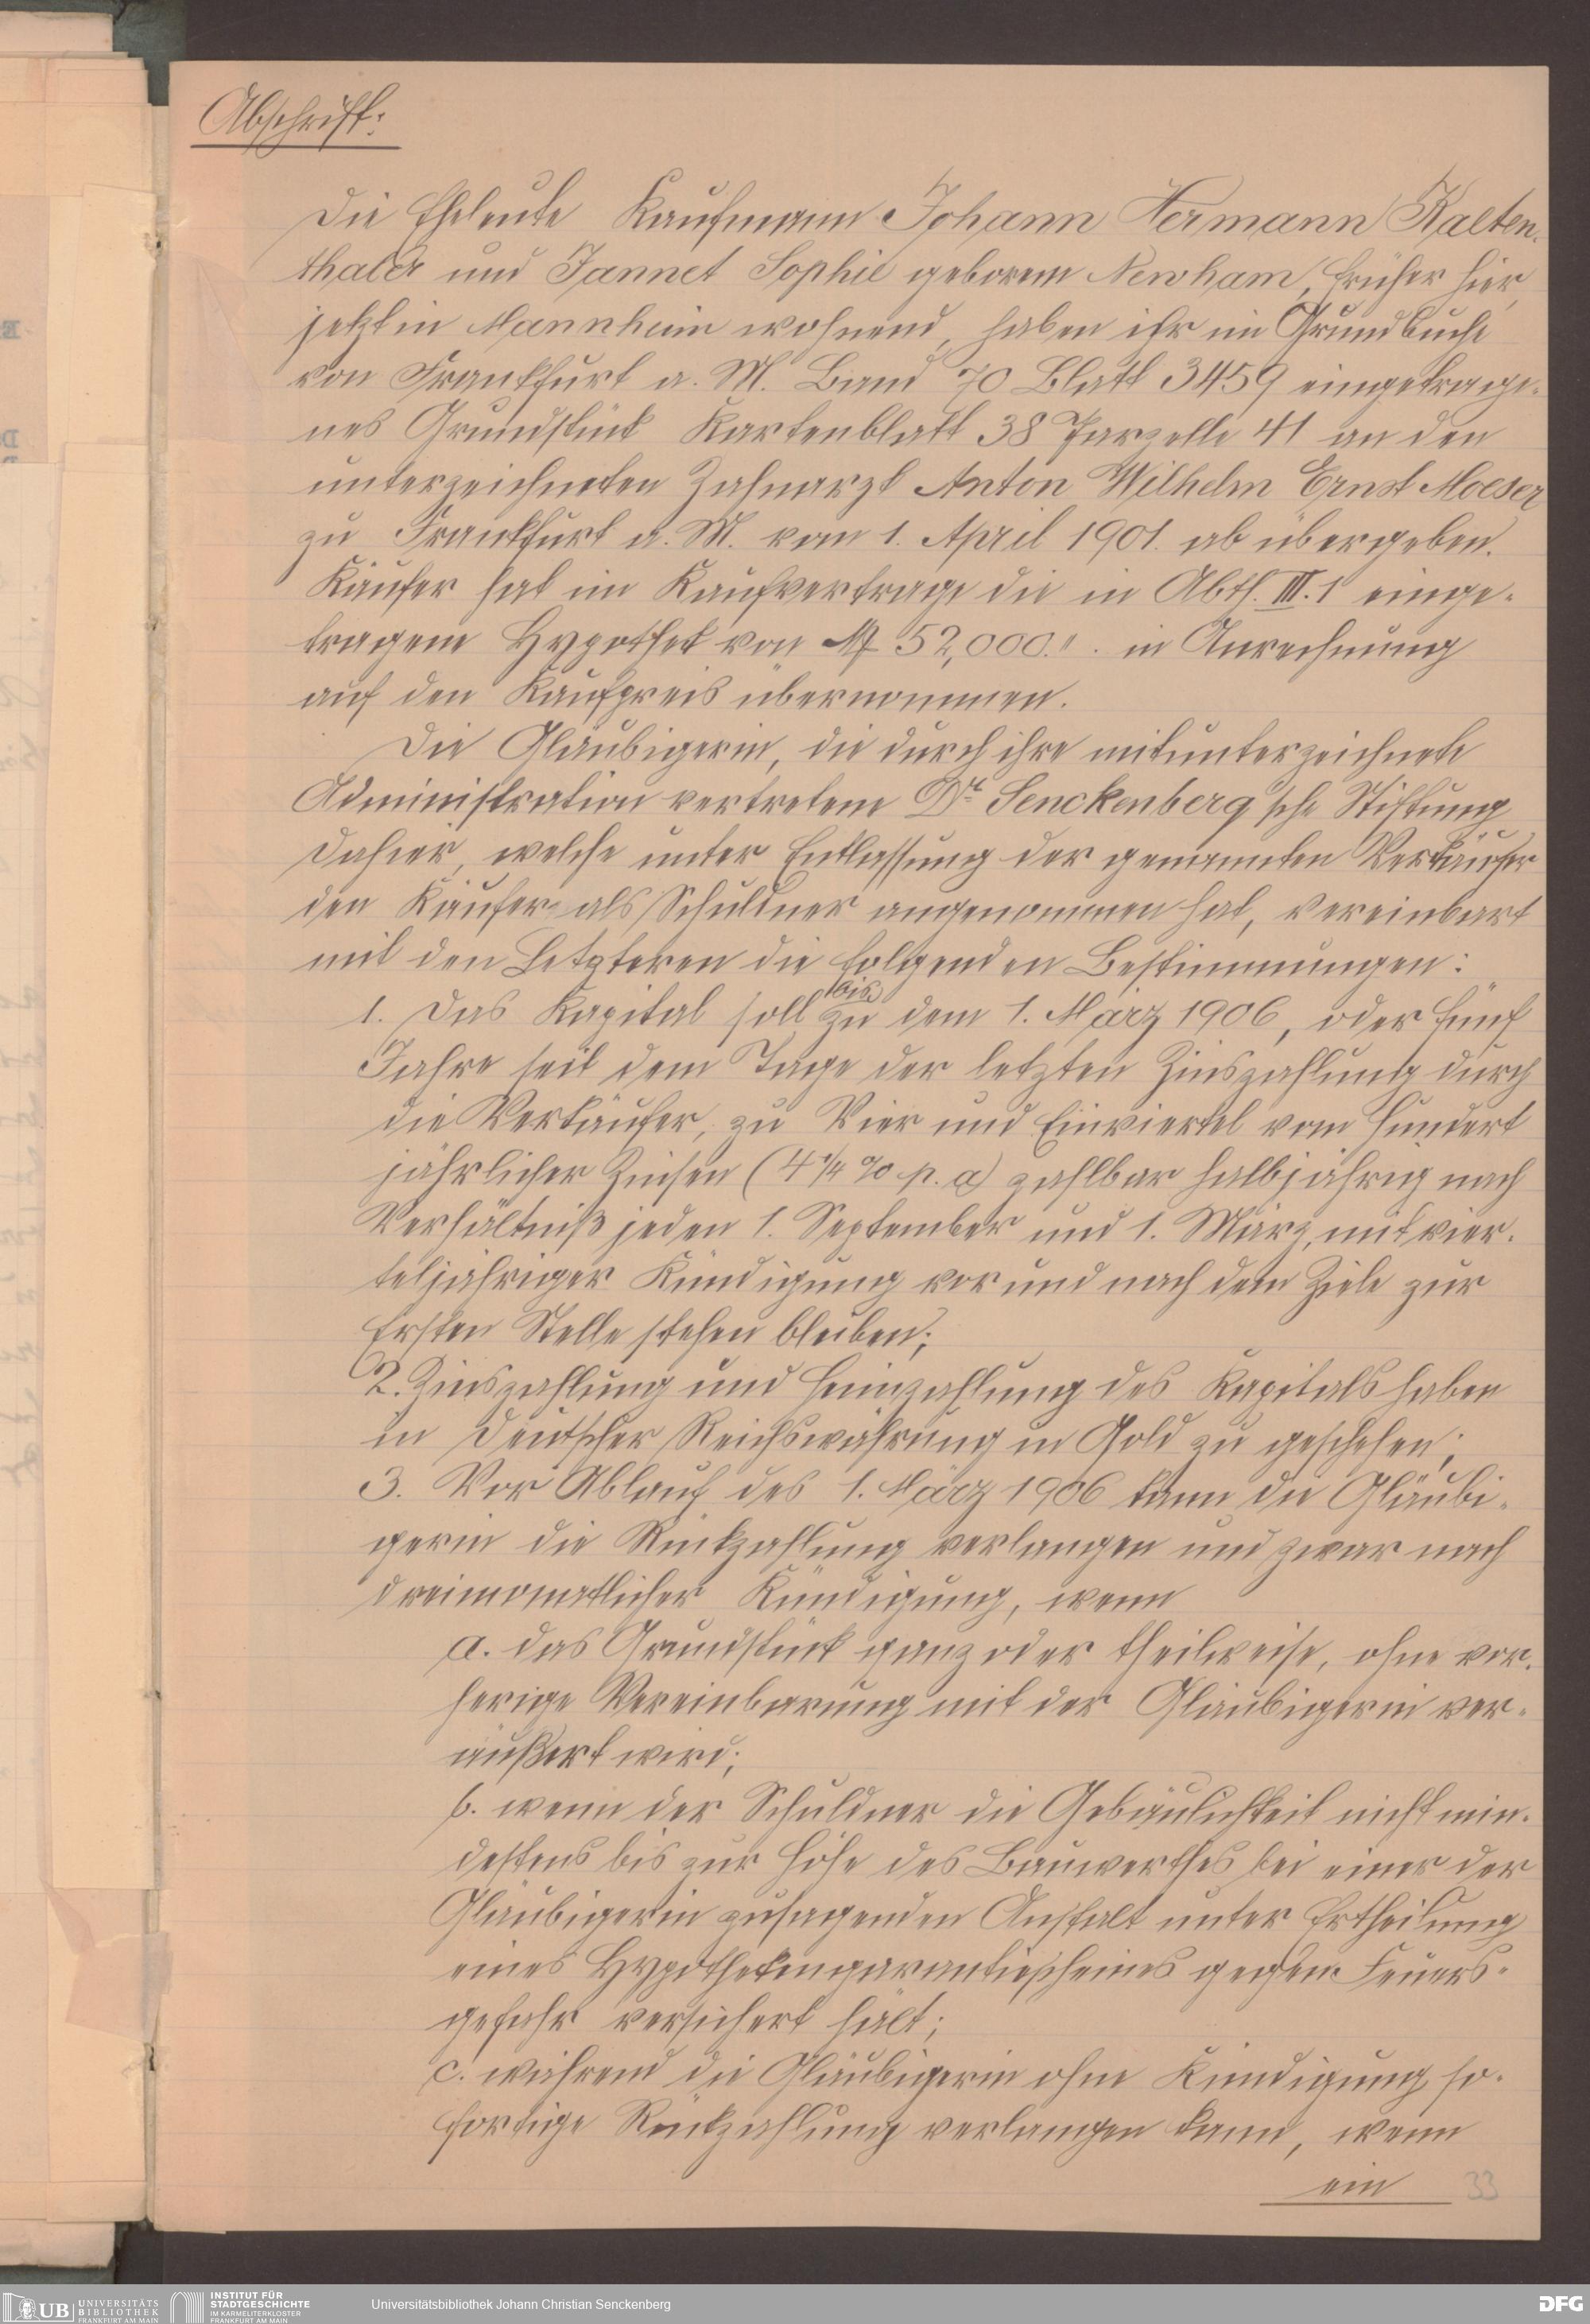 Abschrift:
Die Eheleute Kaufmann Johann Hermann Kalten-
thaler und Jannet Sophie geborene Newham, früher hier,
jetzt in Mannheim wohnend, haben ihr im Grundbuche
von Frankfurt a. M. Band 70 Blatt 3459 eingetrage-
nes Grundstück Kartenblatt 38 Parzelle 41 an den
unterzeichneten Zahnarzt Anton Wilhelm Ernst Moeser
zu Frankfurt a. M. vom 1. April 1901. ab übergeben.
Käufer hat im Kaufvertrage die in Abth. III. 1 einge-
tragene Hypothek von M 52,000.". in Anrechnung
auf den Kaufpreis übernommen.
Die Gläubigerin, die durch ihre mitunterzeichnete
Administration vertretene Dr. Senckenberg'sche Stiftung
dahier, welche unter Entlassung der genannten Verkäufer
den Käufer als Schuldner angenommen hat, vereinbart
mit den Letzteren die folgenden Bestimmungen:
1. Das Kapital soll bis zu dem 1. März 1906, oder fünf
Jahre seit dem Tage der letzten Zinszahlung durch
die Verkäufer, zu Vier und Einviertel vom Hundert
jährlicher Zinsen (4 1/4 % p. a) zahlbar halbjährig nach
Verhältniß jeden 1. September und 1. März, mit vier-
teljähriger Kündigung vor und nach dem Ziele zur
Ersten Stelle stehen bleiben;
2. Zinszahlung und Heimzahlung des Kapitals haben
in Deutscher Reichswährung in Gold zu geschehen;
3. Vor Ablauf des 1. März 1906 kann die Gläubi-
gerin die Rückzahlung verlangen und zwar nach
dreimonatlicher Kündigung, wenn
a. das Grundstück ganz oder theilweise, ohne vor-
herige Vereinbarung mit der Gläubigerin ver-
äußert wird;
b. wenn der Schuldner die Gebäulichkeit nicht min-
destens bis zur Höhe des Bauwerthes bei einer der
Gläubigerin zusagenden Anstalt unter Ertheilung
eines Hypothekengarantiescheines gegen Feuers-
gefahr versichert hält;
c. während die Gläubigerin ohne Kündigung so-
fortige Rückzahlung verlangen kann, wenn
ein 33
UB UNIVERSITÄTS BIBLIOTHEK FRANKFURT AM MAIN
INSTITUT FÜR STADTGESCHICHTE IM KARMELITERKLOSTER FRANKFURT AM MAIN
Universitätsbibliothek Johann Christian Senckenberg
DFG